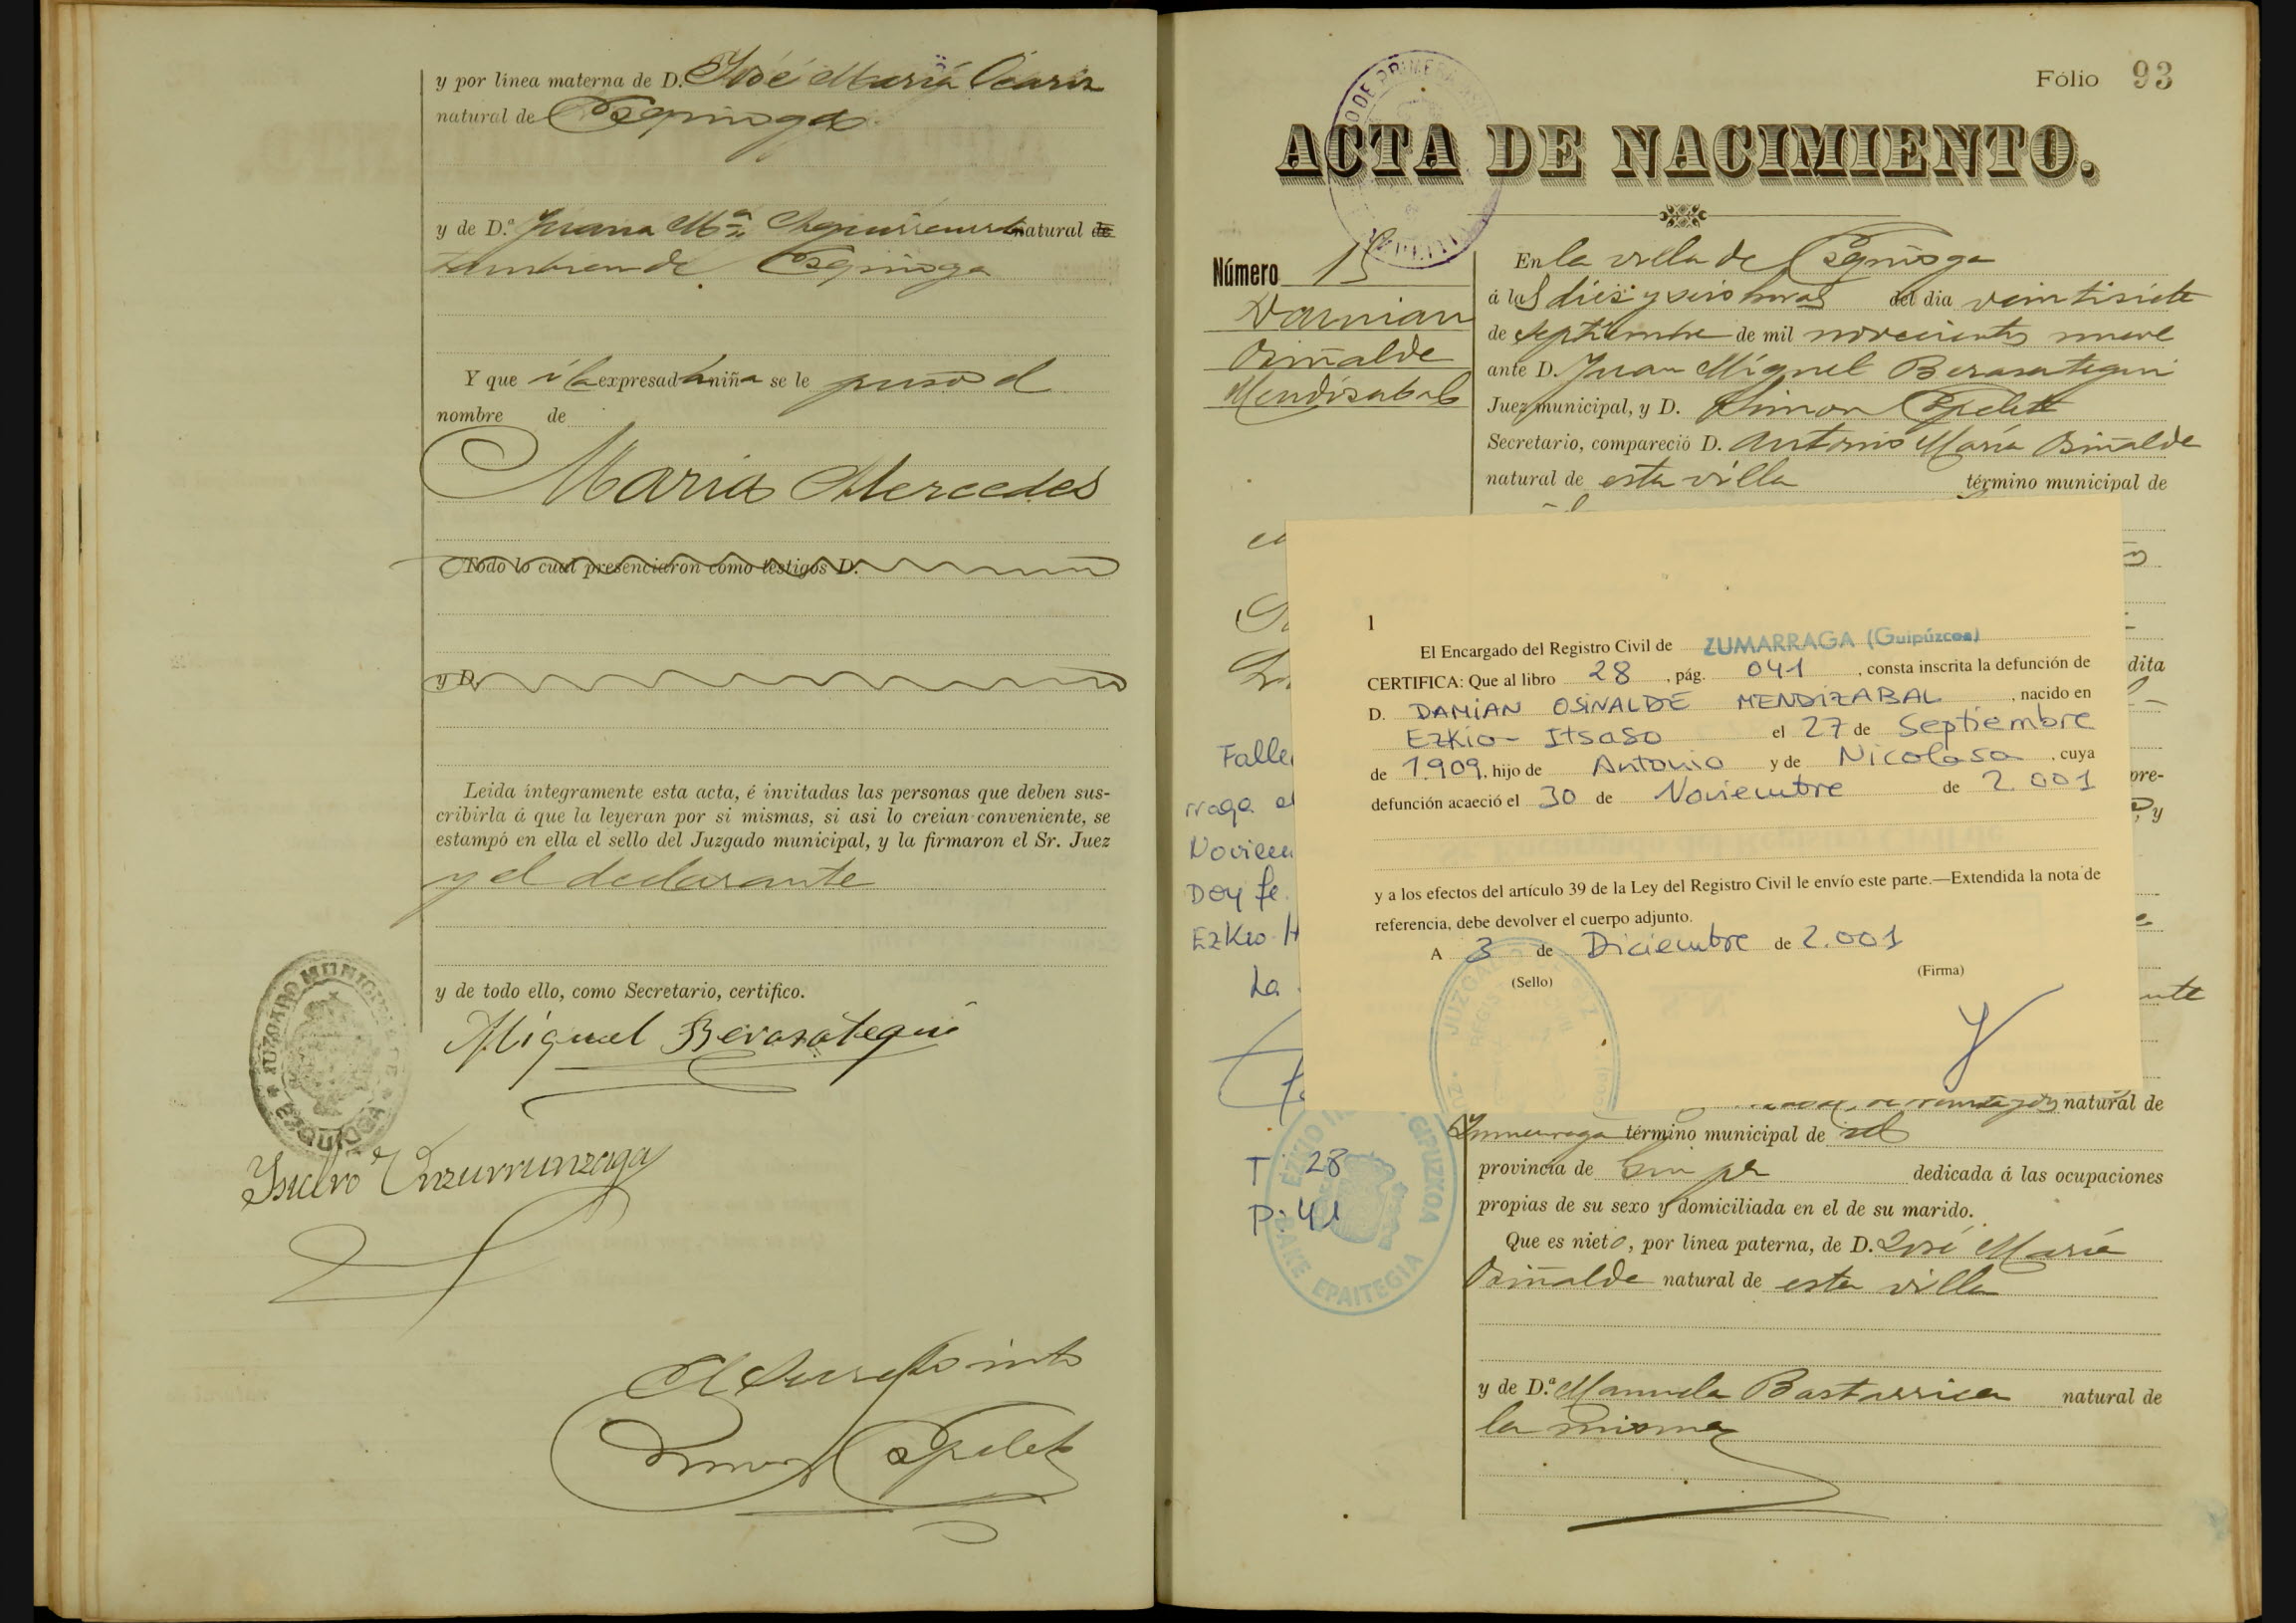 y por línea materna de D. José María Ocariz
natural de Ezquioga
y de D.ª Juana Mª natural de
tambien de Ezquioga
Y que á la expresada niña se le puso el
nombre de
Maria Mercedes
Todo lo cual presenciaron como testigos D.
y D.
Leida íntegramente esta acta, é invitadas las personas que deben sus-
cribirla á que la leyeran por si mismas, si asi lo creian conveniente, se
estampó en ella el sello del Juzgado municipal, y la firmaron el Sr. Juez
y el declarante
y de todo ello, como Secretario, certifico.
Miguel Berasategui
JUZGADO MUNICIPAL DE EZQUIOGA
Isidro Inzurrunzaga
El Secretario
Simon Espeleta
Fólio 93
ACTA DE NACIMIENTO.
Número 15
Damian
Osiñalde
Mendizabal
En la villa de Ezquioga
á las diez y seis horas del dia veintisiete
de septiembre de mil novecientos nueve
ante D. Juan Miguel Berasategui
Juez municipal, y D. Simon Espeleta
Secretario, compareció D. Antonio María Osiñalde
natural de esta villa término municipal de
1
El Encargado del Registro Civil de ZUMARRAGA (Guipúzcoa)
CERTIFICA: Que al libro 28, pág. 041, consta inscrita la defunción de
D. DAMIAN OSINALDE MENDIZABAL, nacido en
Ezkio-Itsaso el 27 de Septiembre
de 1.909, hijo de Antonio y de Nicolasa, cuya
defunción acaeció el 30 de Noviembre de 2.001
y a los efectos del artículo 39 de la Ley del Registro Civil le envío este parte.—Extendida la nota de
referencia, debe devolver el cuerpo adjunto.
A 3 de Diciembre de 2.001
(Sello) (Firma)
dita
pre-
y
Falle
rraga el
Noviem
Doy fe.
Ezkio-It
La
T: 28
P: 41
GIPUZKOA
BAKE EPAITEGIA
natural de
Zumarraga término municipal de id
provincia de Guipª dedicada á las ocupaciones
propias de su sexo y domiciliada en el de su marido.
Que es nieto, por línea paterna, de D. José María
Osiñalde natural de esta villa
y de D.ª Manuela Bastarrica natural de
la misma